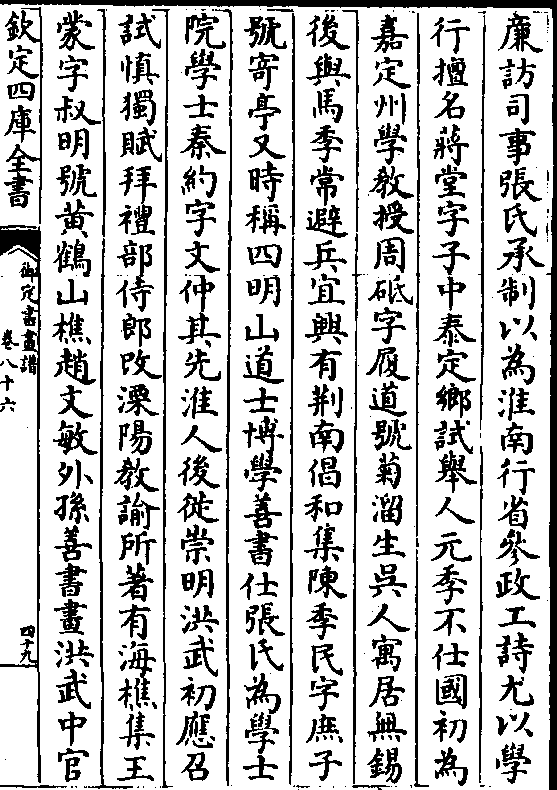 廉訪司事張氏承制以為淮南行省參政工詩尤以學
行擅名蔣堂字子中泰定鄉試舉人元季不仕國初為
嘉定州學教授周砥字履道號菊溜生吳人寓居無錫
後與馬季常避兵宜興有荆南倡和集陳季民字庶子
號寄亭又時稱四明山道士博學善書仕張氏為學士
院學士秦約字文仲其先淮人後徙崇明洪武初應召
試慎獨賦拜禮部侍郎改溧陽教諭所著有海樵集王
蒙字叔明號黄鶴山樵趙文敏外孫善書畫洪武中官
欽定四庫全書
御定書畫譜
卷八十六
四十九